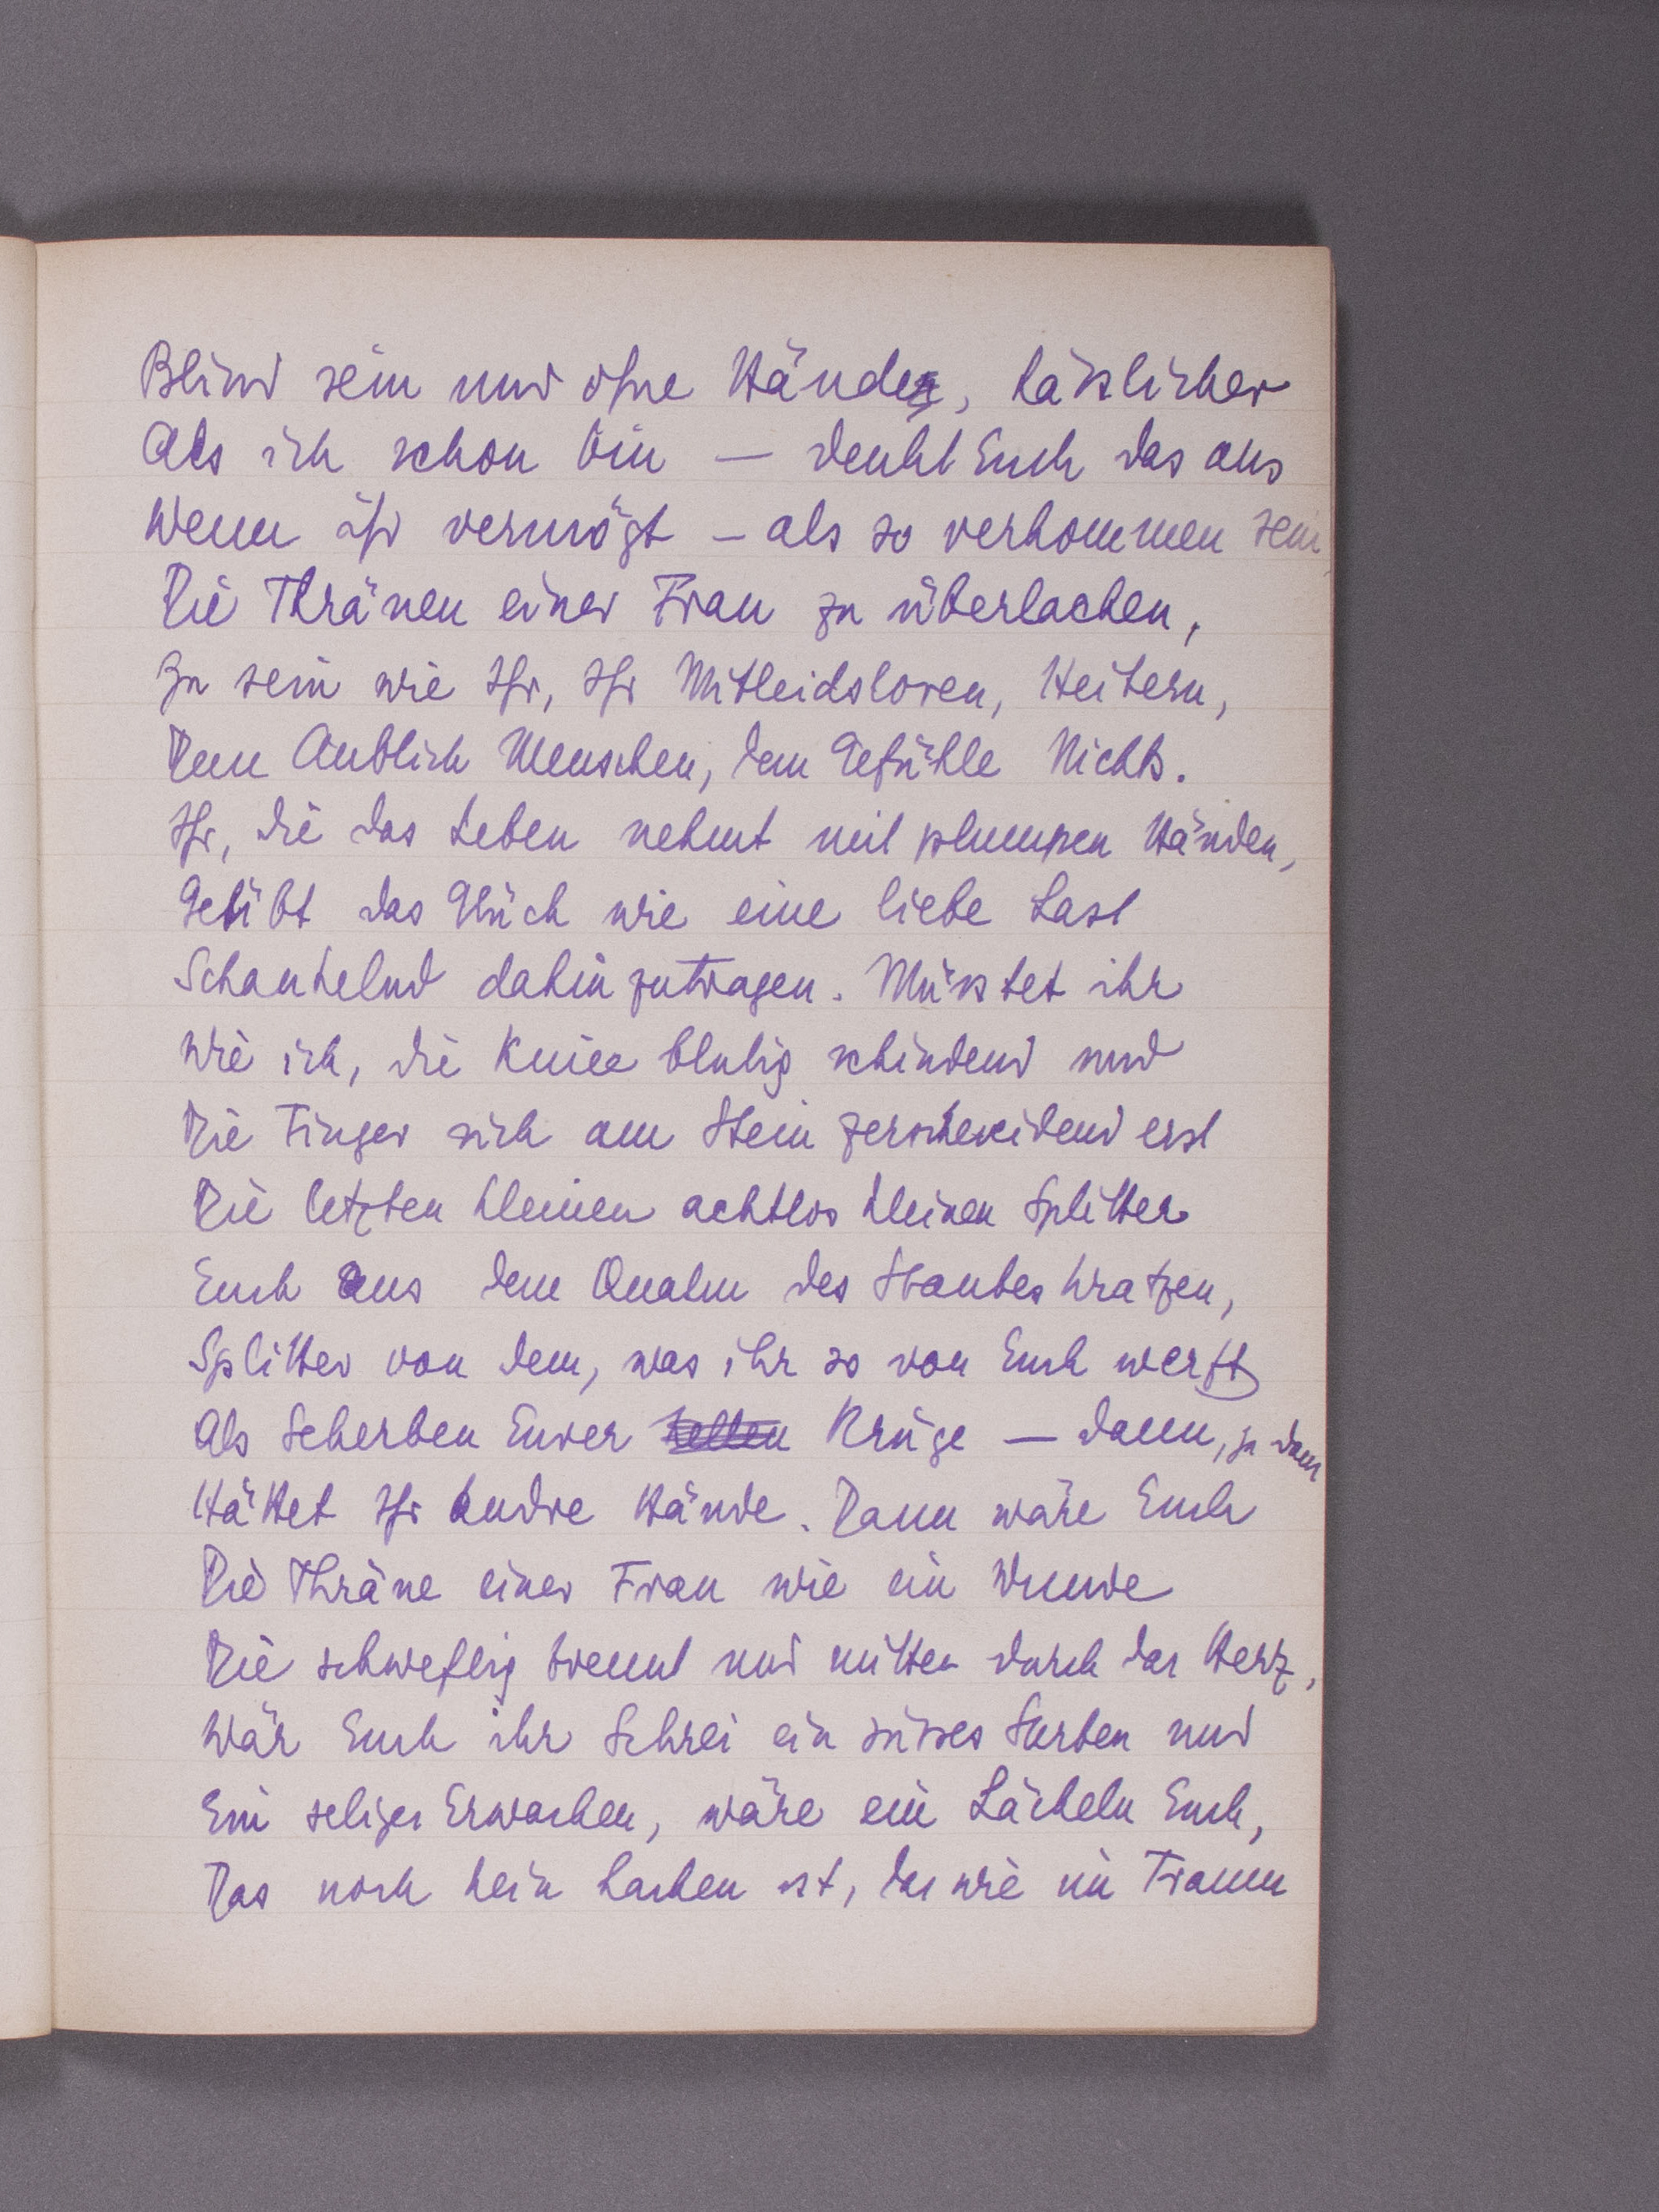 Blind sein und ohne Hände, hässlicher
Als ich schon bin — denkt Euch das aus
Wenn ihr vermögt — als so verkommen sein
Die Thränen einer Frau zu überlachen,
Zu sein wie Ihr, Ihr Mitleidslosen, Heitern,
Dem Anblick Menschen, dem Gefühle Nichts.
Ihr, die das Leben nehmt mit plumpen Händen,
Geübt das Glück wie eine liebe Last
Schaukelnd dahinzutragen. Müsstet ihr
Wie ich, die Kniee blutig schindend und
Die Finger sich am Stein zerschneidend erst
Die letzten kleinen achtlos kleinen Splitter
Euch aus dem Qualm des Staubes kratzen,
Splitter von dem, was ihr so von Euch werft
Als Scherben Eurer hellen Krüge — dann, ja dann
Hättet Ihr andre Hände. Dann wäre Euch
Die Thräne einer Frau wie ein Wunde
Die schweflig brennt und mitten durch das Herz,
Wär Euch ihr Schrei ein süsses Sterben und
Ein seliges Erwachen, wäre ein Lächeln Euch,
Das noch kein Lachen ist, das wie im Traum